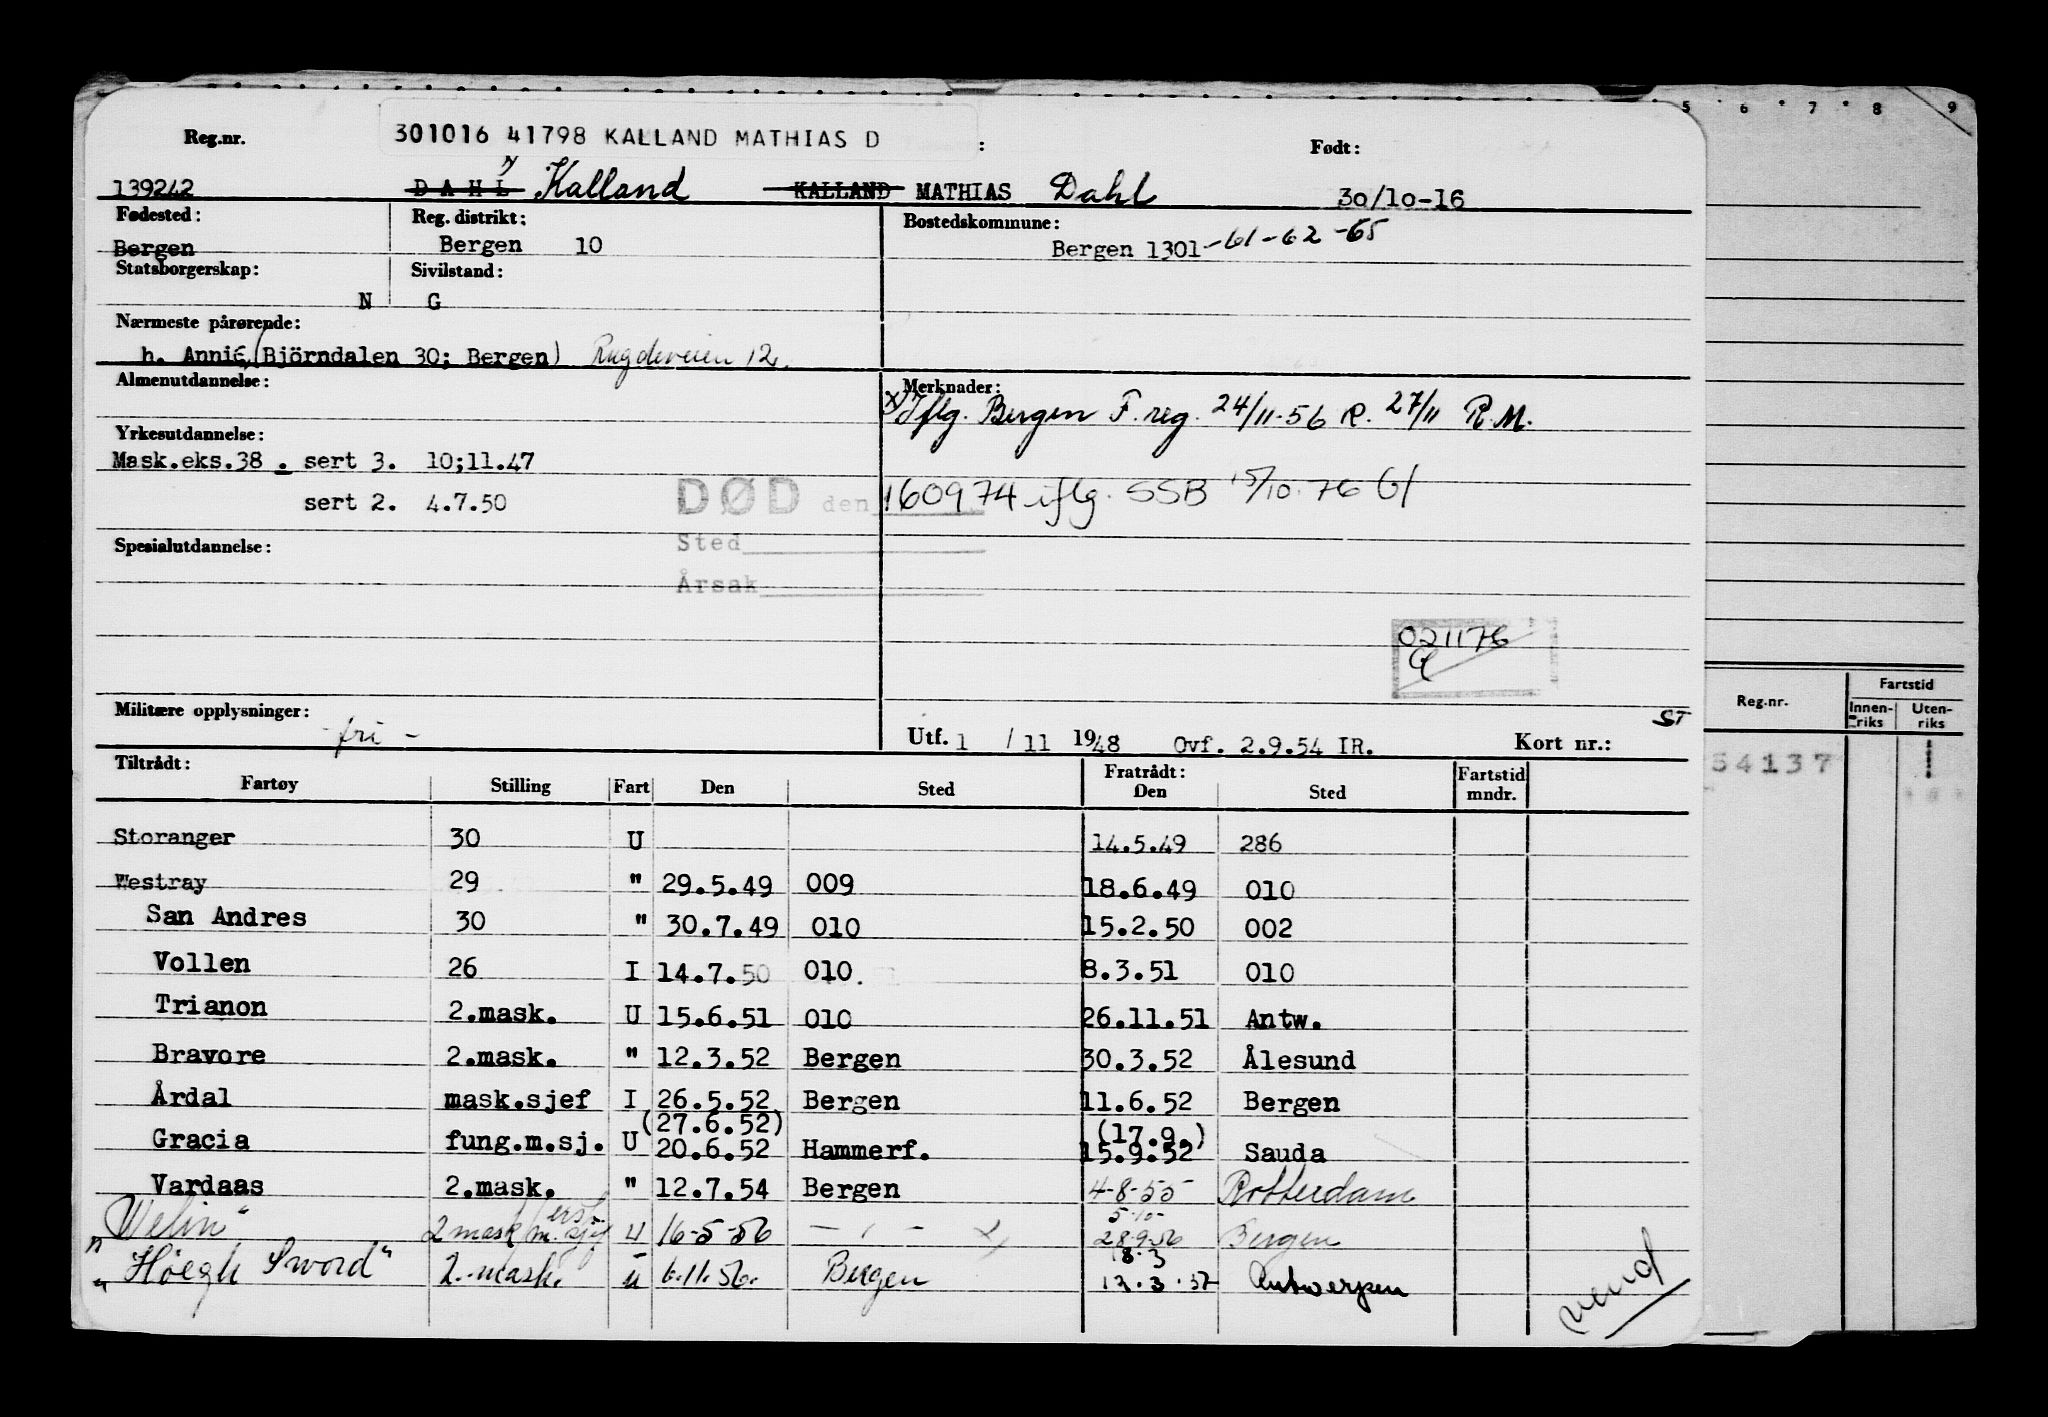 5 6 7 8 9
Reg.nr. 301016 41798 KALLAND MATHIAS D : Født:
139242 DAHL Kalland KALLAND MATHIAS Dahl 30/10-16
Fødested: Reg. distrikt: Bostedskommune:
Bergen Bergen 10 Bergen 1301-61-62-65
Statsborgerskap: Sivilstand:
N G
Nærmeste pårørende:
h. Annie, (Björndalen 30; Bergen) Rugdeveien 12.
Almenutdannelse: Merknader:
x Iflg. Bergen F. reg. 24/11-56 R. 27/11 R.M.
Yrkesutdannelse:
Mask.eks.38 . sert 3. 10;11.47
sert 2. 4.7.50 DØD den 160974 iflg. SSB 15/10.76
Spesialutdannelse: Sted
Årsak
021176
Militære opplysninger: ST
- fri - Utf. 1 / 11 1948 Ovf. 2.9.54 IR. Kort nr.:
Tiltrådt: Fratrådt: Fartstid
Fartøy Stilling Fart Den Sted Den Sted mndr.
Storanger 30 U 14.5.49 286
Westray 29 " 29.5.49 009 18.6.49 010
San Andres 30 " 30.7.49 010 15.2.50 002
Vollen 26 I 14.7.50 010. 8.3.51 010
Trianon 2.mask. U 15.6.51 010 26.11.51 Antw.
Bravore 2.mask. " 12.3.52 Bergen 30.3.52 Ålesund
Årdal mask.sjef I 26.5.52 Bergen 11.6.52 Bergen
(27.6.52) (17.9.)
Gracia fung.m.sj. U 20.6.52 Hammerf. 15.9.52 Sauda
Vardaas 2.mask. " 12.7.54 Bergen 4-8-55 Rotterdam
5-10-
"Velin" 2 mask/m.sjef U 16-5-56 - " - 28.9.56 Bergen
8.3
"Höegh Sword" 2. mask. u 6.11.56. Bergen 12.3.57 Antwerpen
vend
Reg.nr. Fartstid
Innen-riks Uten-riks
54137